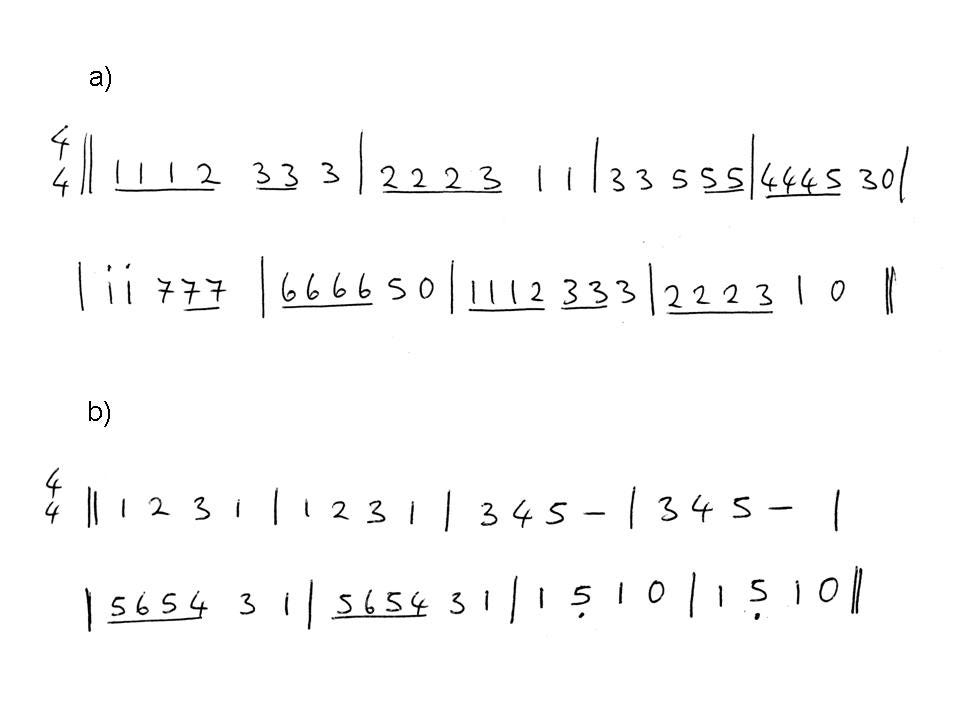 a)
4/4 || 1 1 1 2 3 3 3 | 2 2 2 3 1 1 | 3 3 5 5 5 | 4 4 4 5 3 0 |
| i i 7 7 7 | 6 6 6 6 5 0 | 1 1 1 2 3 3 3 | 2 2 2 3 1 0 ||
b)
4/4 || 1 2 3 1 | 1 2 3 1 | 3 4 5 – | 3 4 5 – |
| 5 6 5 4 3 1 | 5 6 5 4 3 1 | 1 5̣ 1 0 | 1 5̣ 1 0 ||